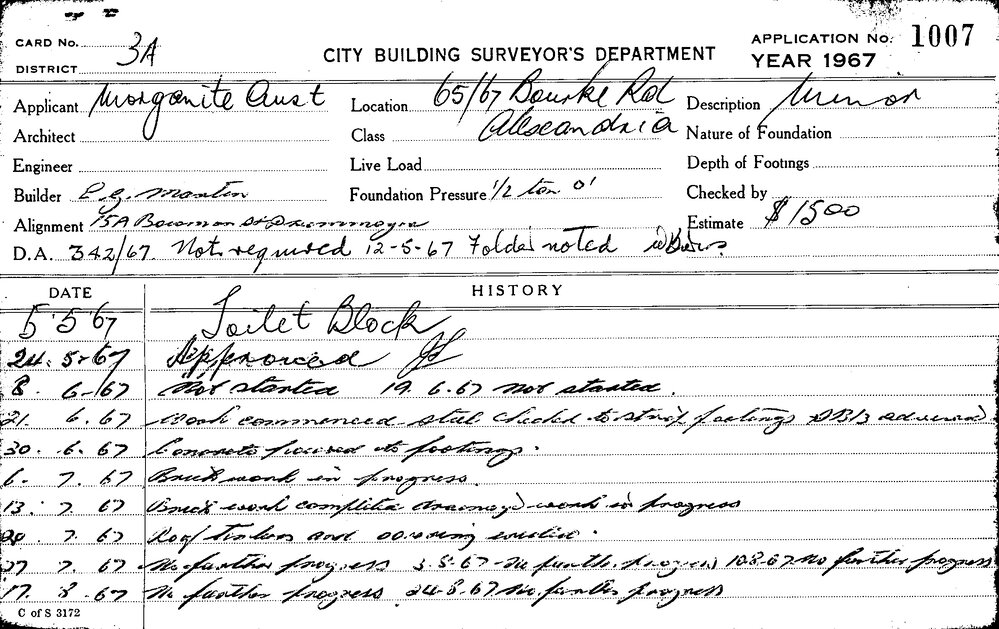 CARD No. 3A
DISTRICT
CITY BUILDING SURVEYOR'S DEPARTMENT
APPLICATION No. 1007
YEAR 1967
Applicant Morganite Aust Location 65/67 Bourke Rd Description Minor
Architect Class Alexandria Nature of Foundation
Engineer Live Load Depth of Footings
Builder E. G. Martin Foundation Pressure 1/2 ton □' Checked by
Alignment 15A Bowman St Drummoyne Estimate $1500
D.A. 342/67. Not required 12-5-67 Folder noted
DATE HISTORY
5 5 67 Toilet Block
24. 5-67 Approved
8. 6-67 Not started 19. 6.67 Not started.
21. 6.67 Work commenced steel checked to strip footings DBB advised
30. 6. 67 Concrete poured to footings.
6. 7. 67 Brickwork in progress.
13. 7. 67 Brick work completed drainage work in progress
7. 67 Roof timbers and covering erected.
27 7. 67 No further progress 3.8.67 - No further progress 10.8.67 No further progress
17. 8. 67 No further progress 24-8.67 No further progress
C of S 3172